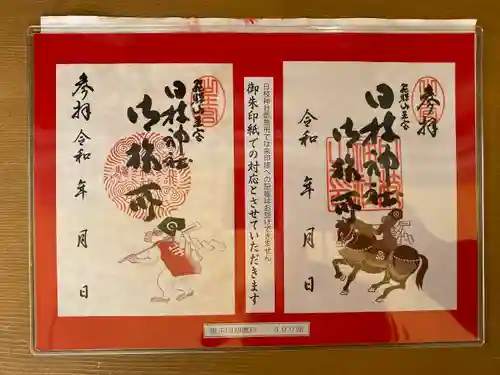 参拝
飛騨山王宮
日枝神社
御旅所
令和 年 月 日
日枝神社御旅所では朱印帳への記帳はお受けできません
御朱印紙での対応とさせていただきます
飛騨山王宮
日枝神社
御旅所
参拝
令和 年 月 日